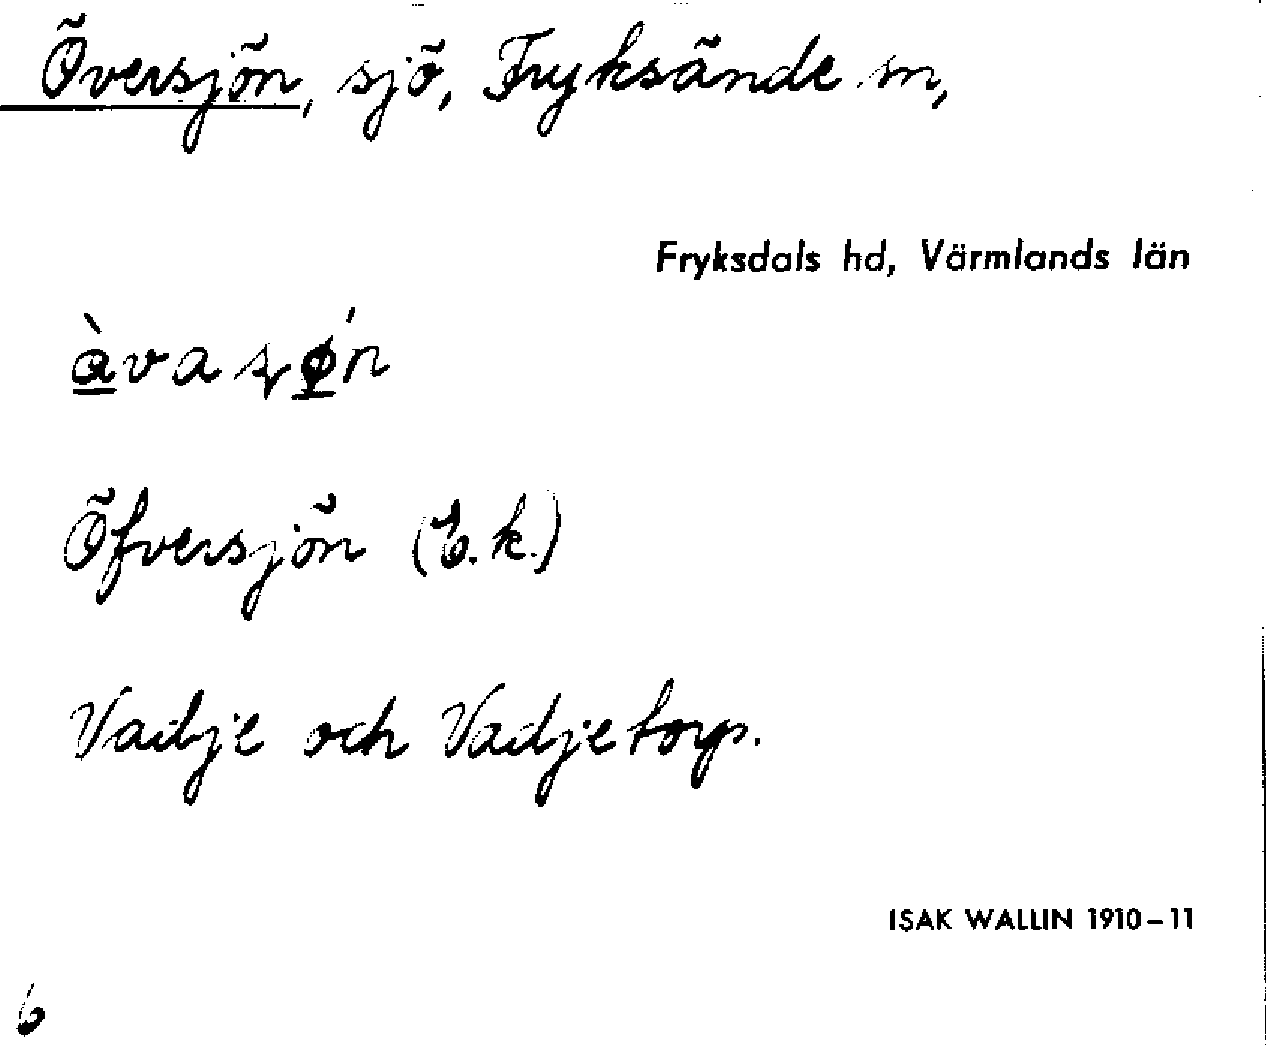 Översjön, sjö, Fryksände sn,
Fryksdals hd, Värmlands län
Öfversjön (E.k.)
Vadje och Vadjetorp.
ISAK WALLIN 1910–11
6